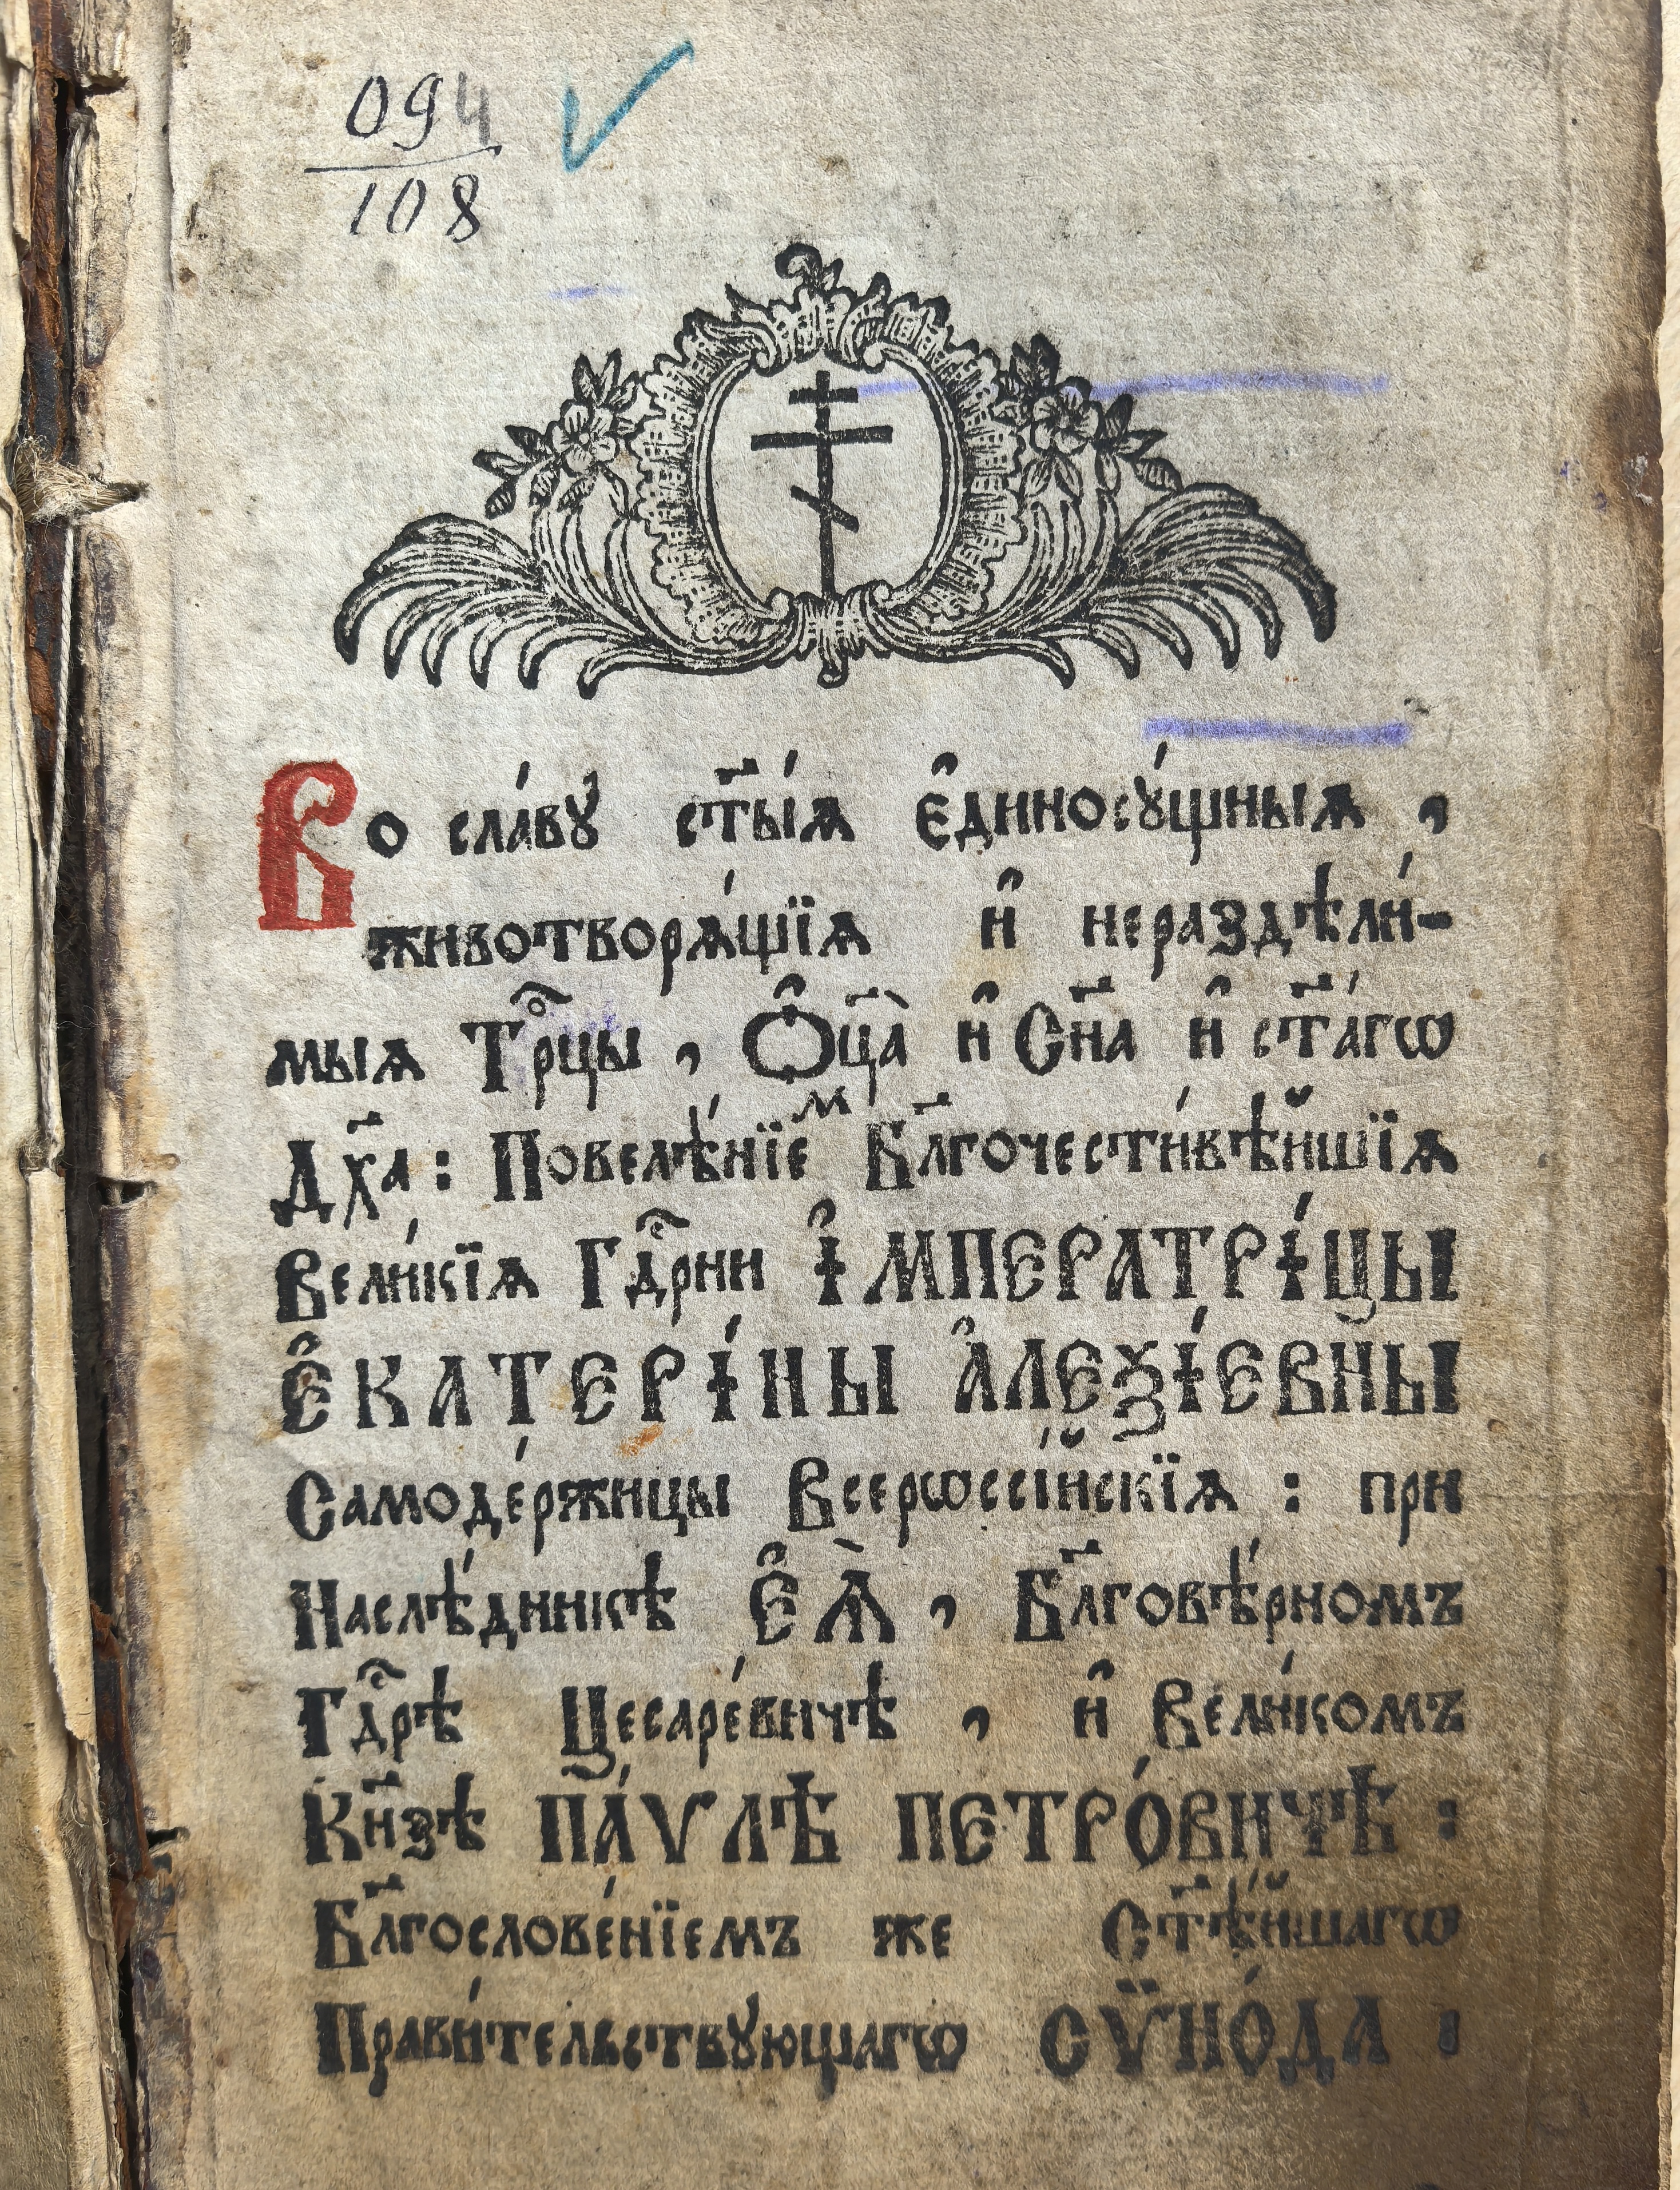 094
108
Во сла́вꙋ ст҃ы́ѧ є҆диносꙋ́щныѧ ,
животворѧ́щїѧ и҆ нераздѣли́-
мыѧ Трⷪ҇цы , Ѻ҆ц҃а̀ и҆ Сн҃а и҆ ст҃а́гѡ
Дх҃а : Повелѣ́нїеⷨ Бл҃гочести́вѣйшїѧ
Вели́кїѧ Гдⷭ҇рни І҆МПЕРАТРІ́ЦЫ
Є҆КАТЕРІ́НЫ А҆ЛЕѮІ́ЕВНЫ
Самоде́ржицы Всерѡссі́йскїѧ : при
Наслѣ́дникѣ Є҆Ѧ̀ , Бл҃говѣ́рномъ
Гдⷭ҇рѣ Цесаре́вичѣ , и҆ Вели́комъ
Кн҃зѣ ПА́ѴЛѢ ПЕТРО́ВИЧѢ :
Бл҃гослове́нїемъ же Ст҃ѣ́йшагѡ
Прави́тельствꙋющагѡ СѶНО́ДА :